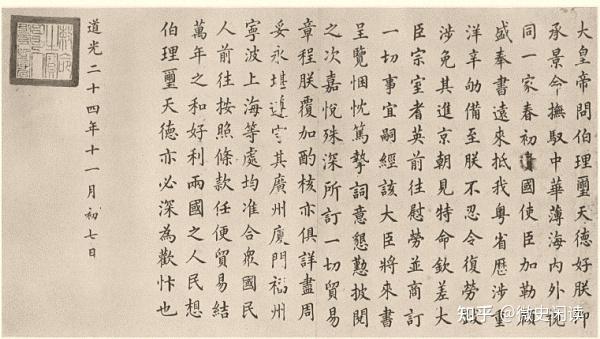 大皇帝問伯理璽天德好朕仰
承景命撫馭中華薄海內外視
同一家春初國使臣加勒顧
盛奉書遠來抵我粵省歷涉重
洋辛劬備至朕不忍令復勞跋
涉免其進京朝見特命欽差大
臣宗室耆英前往慰勞並商訂
一切事宜嗣經該大臣將來書
呈覽悃忱篤摯詞意懇懃披閱
之次嘉悅殊深所訂一切貿易
章程朕覆加酌核亦俱詳盡周
妥永堪遵守其廣州廈門福州
寧波上海等處均准合眾國民
人前往按照條款任便貿易結
萬年之和好利兩國之人民想
伯理璽天德亦必深為歡忭也
道光二十四年十一月初七日
知乎 @微史闲读